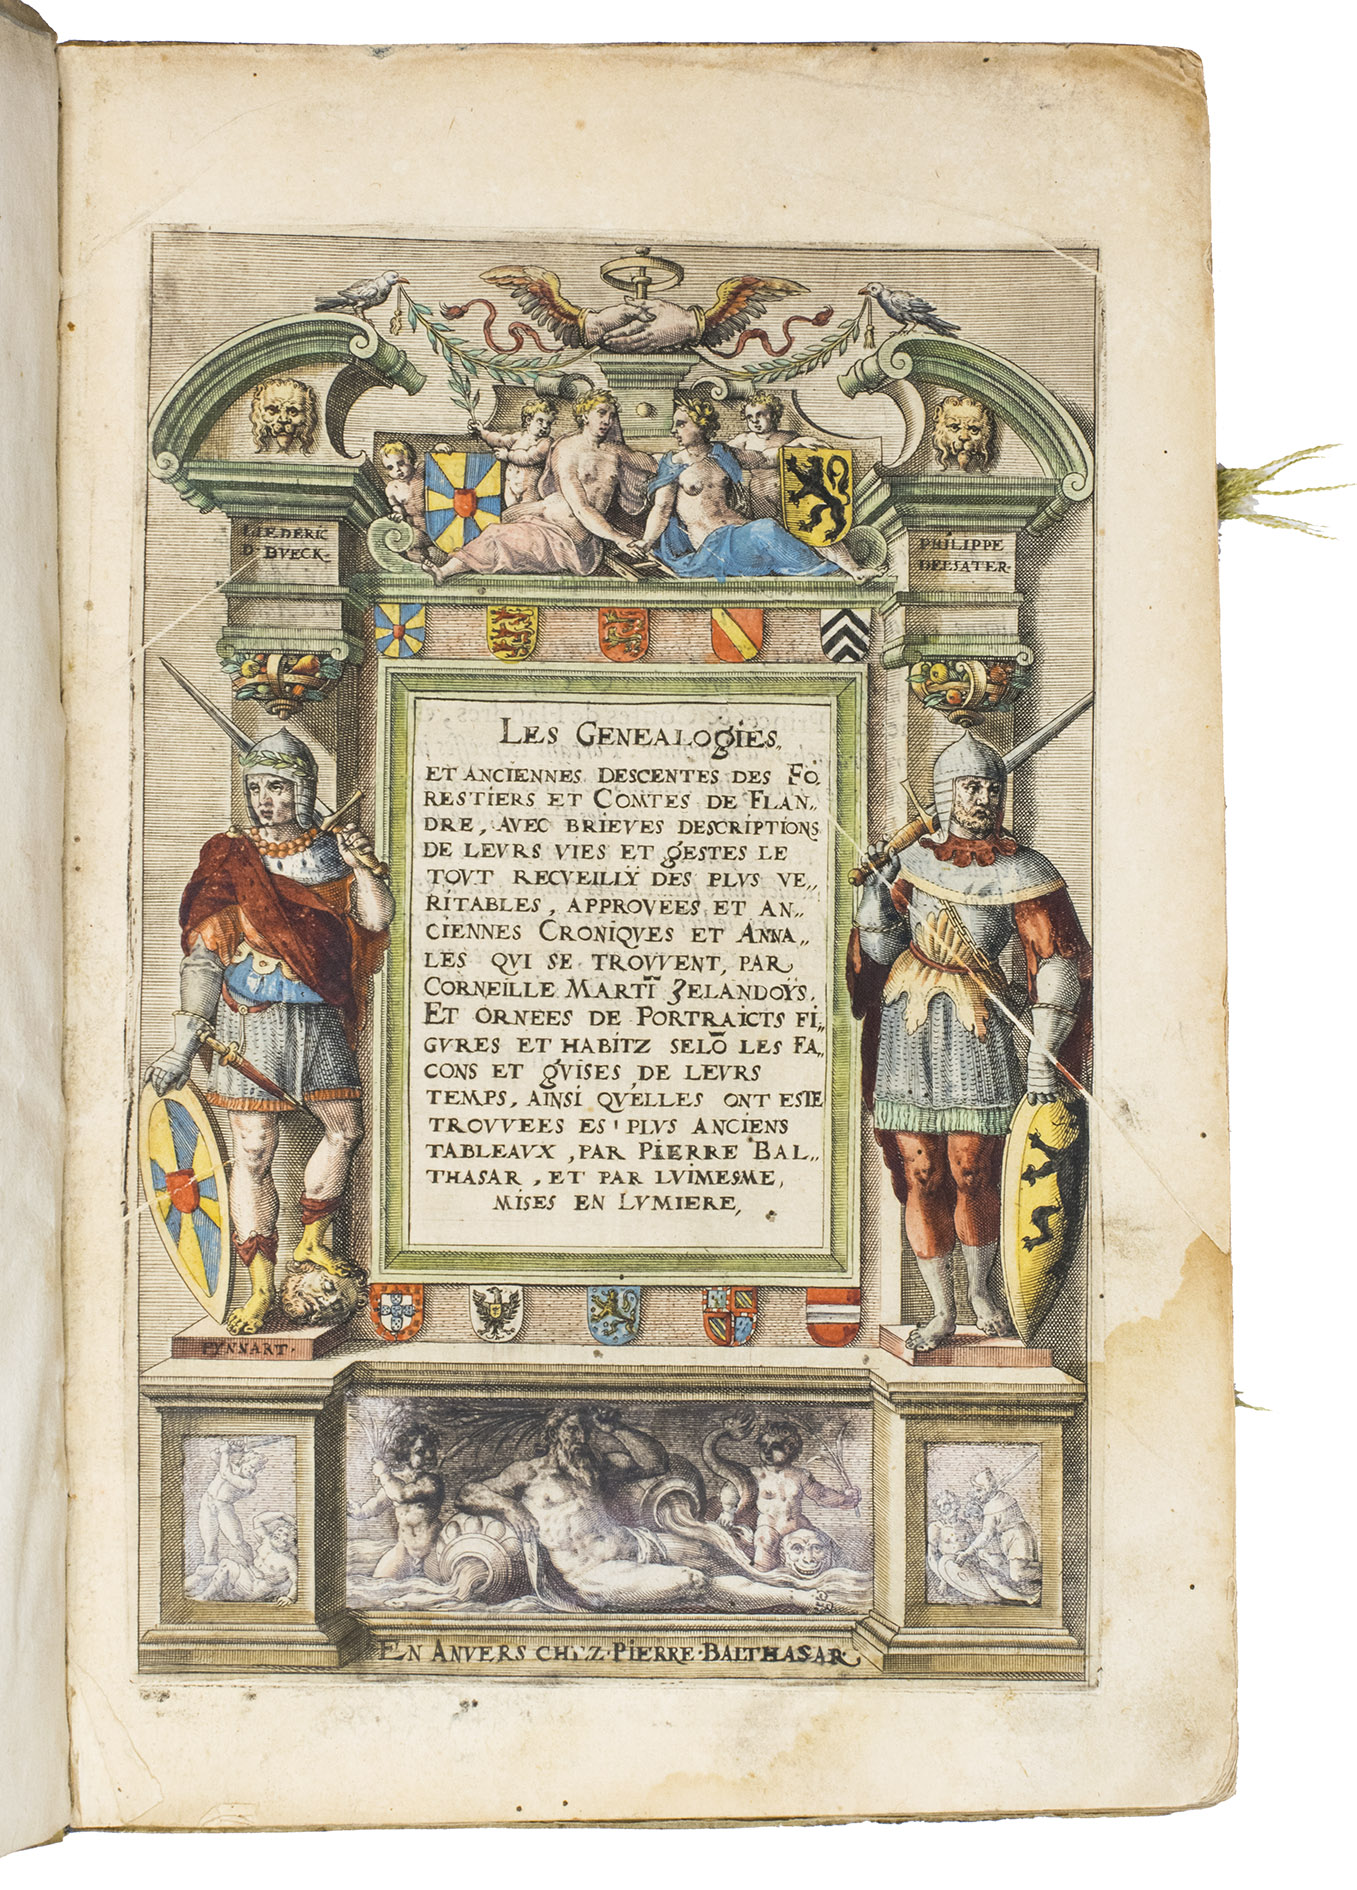 LIEDERIC
D BVECK
PHILIPPE
DELSATER
LES GENEALOGIES,
ET ANCIENNES DESCENTES DES FO
RESTIERS ET COMTES DE FLAN,,
DRE, AVEC BRIEVES DESCRIPTIONS
DE LEVRS VIES ET GESTES LE
TOVT RECVEILLŸ DES PLVS VE,,
RITABLES, APPROVEES ET AN,,
CIENNES CRONIQVES ET ANNA,,
LES QVI SE TROVVENT, PAR
CORNEILLE MARTĪ ZELANDOŸS,
ET ORNEES DE PORTRAICTS FI,,
GVRES ET HABITZ SELŌ LES FA,,
CONS ET GVISES DE LEVRS
TEMPS, AINSI QV'ELLES ONT ESTE
TROVVEES ES' PLVS ANCIENS
TABLEAVX, PAR PIERRE BAL,,
THASAR, ET PAR LVIMESME,
MISES EN LVMIERE,
PYNNART.
EN ANVERS CHEZ·PIERRE·BALTHASAR·